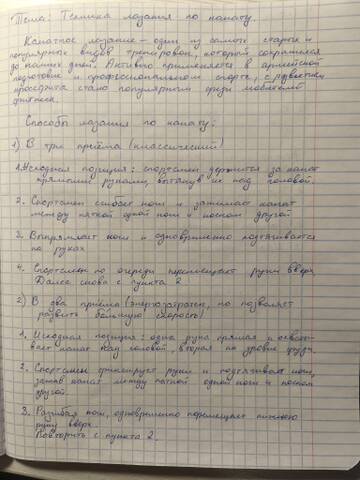 Тема: Техника лазания по канату.
Канатное лезание – один из самых старых и
популярных видов тренировок, который сохранился
до наших дней. Активно применяется в армейской
подготовке и профессиональном спорте, с развитием
кроссфита стало популярным среди любителей
фитнеса.
Способы лазания по канату:
1) В три приёма (классический)
1. Исходная позиция: спортсмен держится за канат
прямыми руками, вытянув их над головой.
2. Спортсмен сгибает ноги и зажимает канат
между пяткой одной ноги и носком другой
3. Выпрямляет ноги и одновременно подтягивается
на руках
4. Спортсмен по очереди перемещает руки вверх
Далее снова с пункта 2
2) В два приёма (энергозатратен, но позволяет
развить большую скорость)
1. Исходная позиция: одна рука прямая и обхваты-
вает канат над головой, вторая на уровне груди.
2. Спортсмен фиксирует руки и подтягивает ноги,
зажав канат между пяткой одной ноги и носком
другой.
3. Разгибая ноги, одновременно перемещает нижнюю
руку вверх.
Повторить с пункта 2.